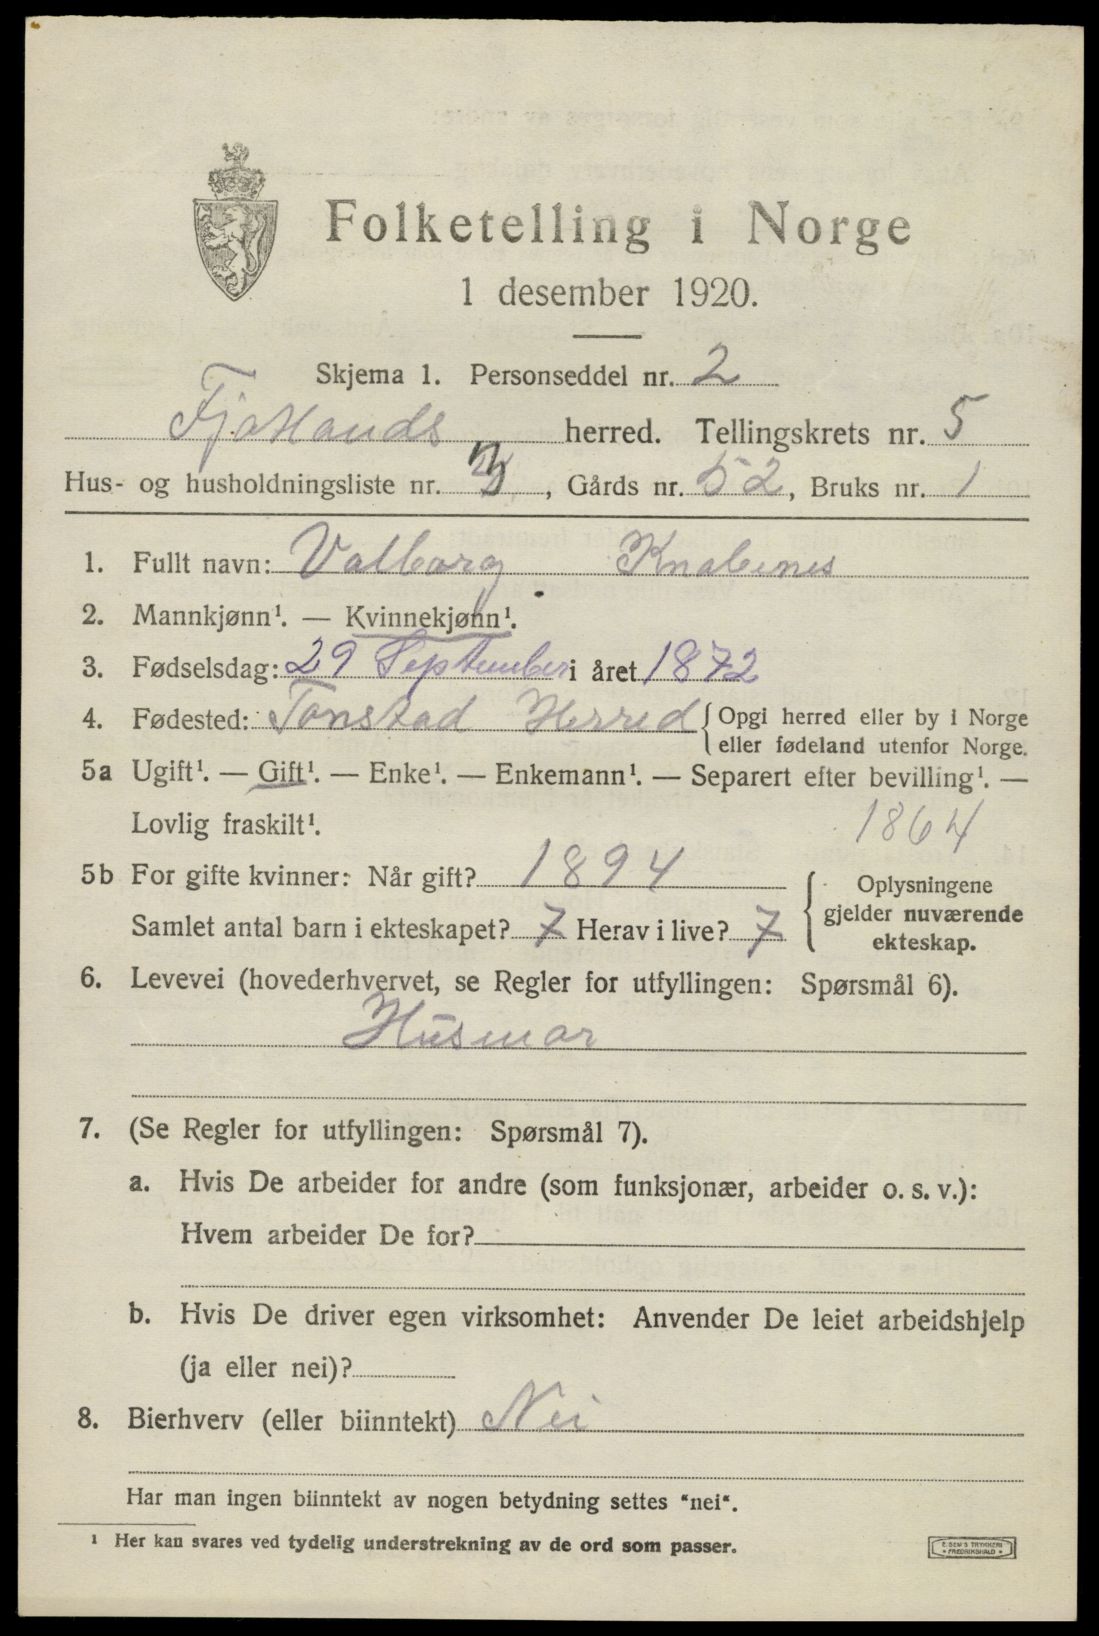 Folketelling i Norge
1 desember 1920.
Skjema 1. Personseddel nr. 2
Fjotlands herred. Tellingskrets nr. 5
Hus- og husholdningsliste nr. 3, Gårds nr. 52, Bruks nr. 1
1. Fullt navn: Valborg Knabenes
2. Mannkjønn¹. — Kvinnekjønn¹.
3. Fødselsdag: 29 September i året 1872
4. Fødested: Tonstad Herred {Opgi herred eller by i Norge
eller fødeland utenfor Norge.
5a Ugift¹. — Gift¹. — Enke¹. — Enkemann¹. — Separert efter bevilling¹. —
Lovlig fraskilt¹. 1864
5b For gifte kvinner: Når gift? 1894 { Oplysningene
gjelder nuværende
Samlet antal barn i ekteskapet? 7 Herav i live? 7
ekteskap.
6. Levevei (hovederhvervet, se Regler for utfyllingen: Spørsmål 6).
Husmor
7. (Se Regler for utfyllingen: Spørsmål 7).
a. Hvis De arbeider for andre (som funksjonær, arbeider o. s. v.):
Hvem arbeider De for?
b. Hvis De driver egen virksomhet: Anvender De leiet arbeidshjelp
(ja eller nei)?
8. Bierhverv (eller biinntekt) Nei
Har man ingen biinntekt av nogen betydning settes "nei".
¹ Her kan svares ved tydelig understrekning av de ord som passer.
E. SEM'S TRYKKERI
• FREDRIKSHALD •